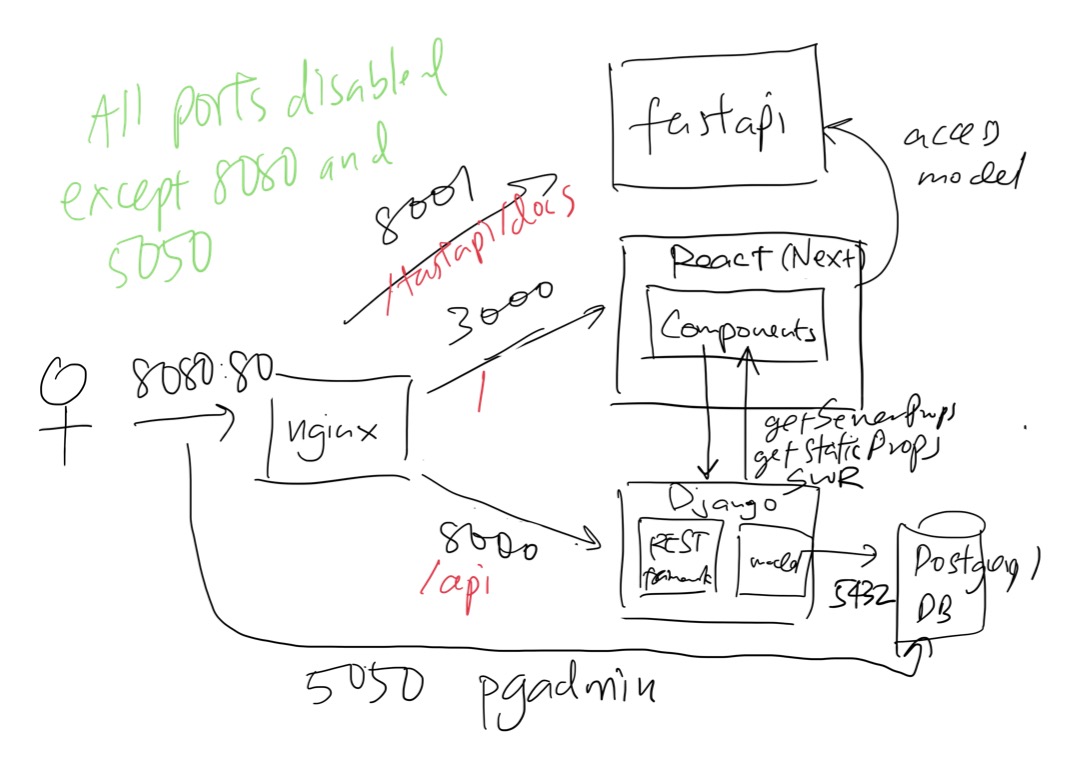 All ports disabled
except 8080 and
5050
fastapi
access
model
8001
/fastapi/docs
React (Next)
Components
3000
/
8080:80
nginx
getServerProps
getStaticProps
SWR
Django
REST
framework
model
8000
/api
5432
DB
5050 pgadmin